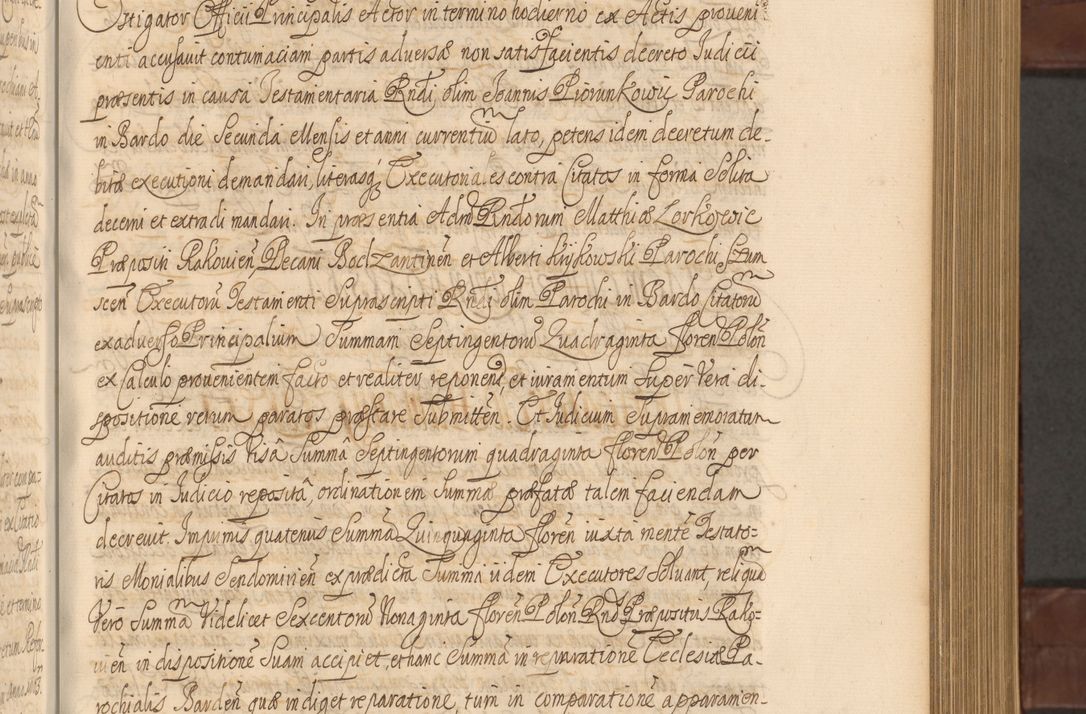 Instigator Officii Principalis et Actor in termino hodierno ex Actis proveni
enti accusavit contumaciam partis adversæ non satisfacientis decreto Iudicii
præsentis in causa Testamentaria Rndi olim Joannis Piorunkowic Parochi
in Bardo die Secunda Mensis et anni currentium lato, petens idem decretum de-
bitæ executioni demandari, literasq₃ Executoriales contra Citatos in forma Solita
decerni et extradi mandari. In præsentia Adm Rndorum Matthiæ Zorkowic
Præpositi Rakovien, Decani Bodzantinen et Alberti Kijkowski Parochi Szum
scen Executorũ Testamenti Suprascripti Rndi olim Parochi in Bardo Citatorũ
ex adverso Principalium Summam Septingentorũ Quadraginta floren Polon
ex Calculo provenientem facto et realiter reponen, et iuramentum Super Vera di-
spositione rerum paratos præstare Submitten. Et Iudicium Supramemoratam
auditis præmissis Visâ Summâ Septingentorum quadraginta floren Polon per
Citatos in Iudicio repositâ, ordinationem Summæ præfatæ talem faciendam
decrevit. Imprimis quatenus Summã Quinquaginta floren iuxta mentẽ Testato=
ris Monialibus Sendomirien ex prædicta Summa iidem Executores Solvant, reliquã
Vero Summãm Videlicet Sexcentorũ Nonaginta floren Polon Rnds Præpositus Rako-
vien in dispositionẽ Suam accipiet, et hanc Summã in reparationẽ Ecclesiæ Pa-
rochialis Barden quæ indiget reparatione, tum in comparationẽ apparamen-